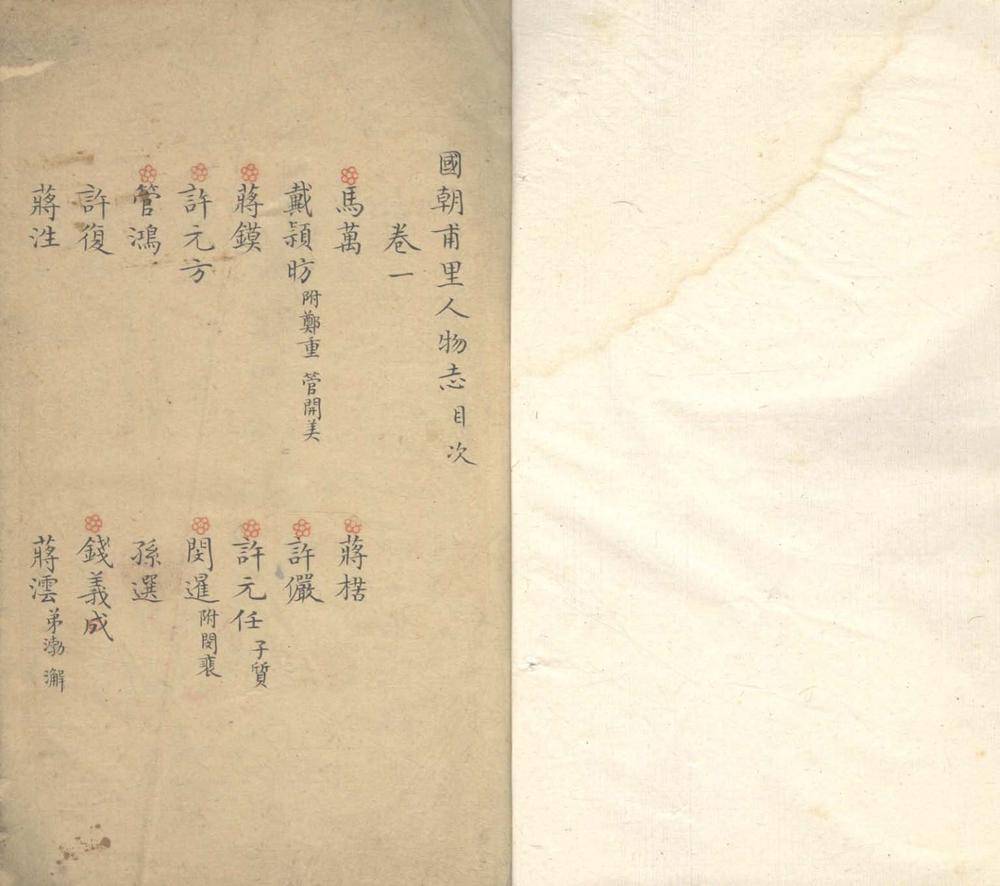 國朝甫里人物志目次
卷一
馬萬
蔣楛
戴頴昉附鄭重 管開美
許儼
蔣鏌
許元任子質
許元方
閔暹附閔裴
管鴻
孫選
許復
錢義成
蔣泩
蔣澐弟渤 澥